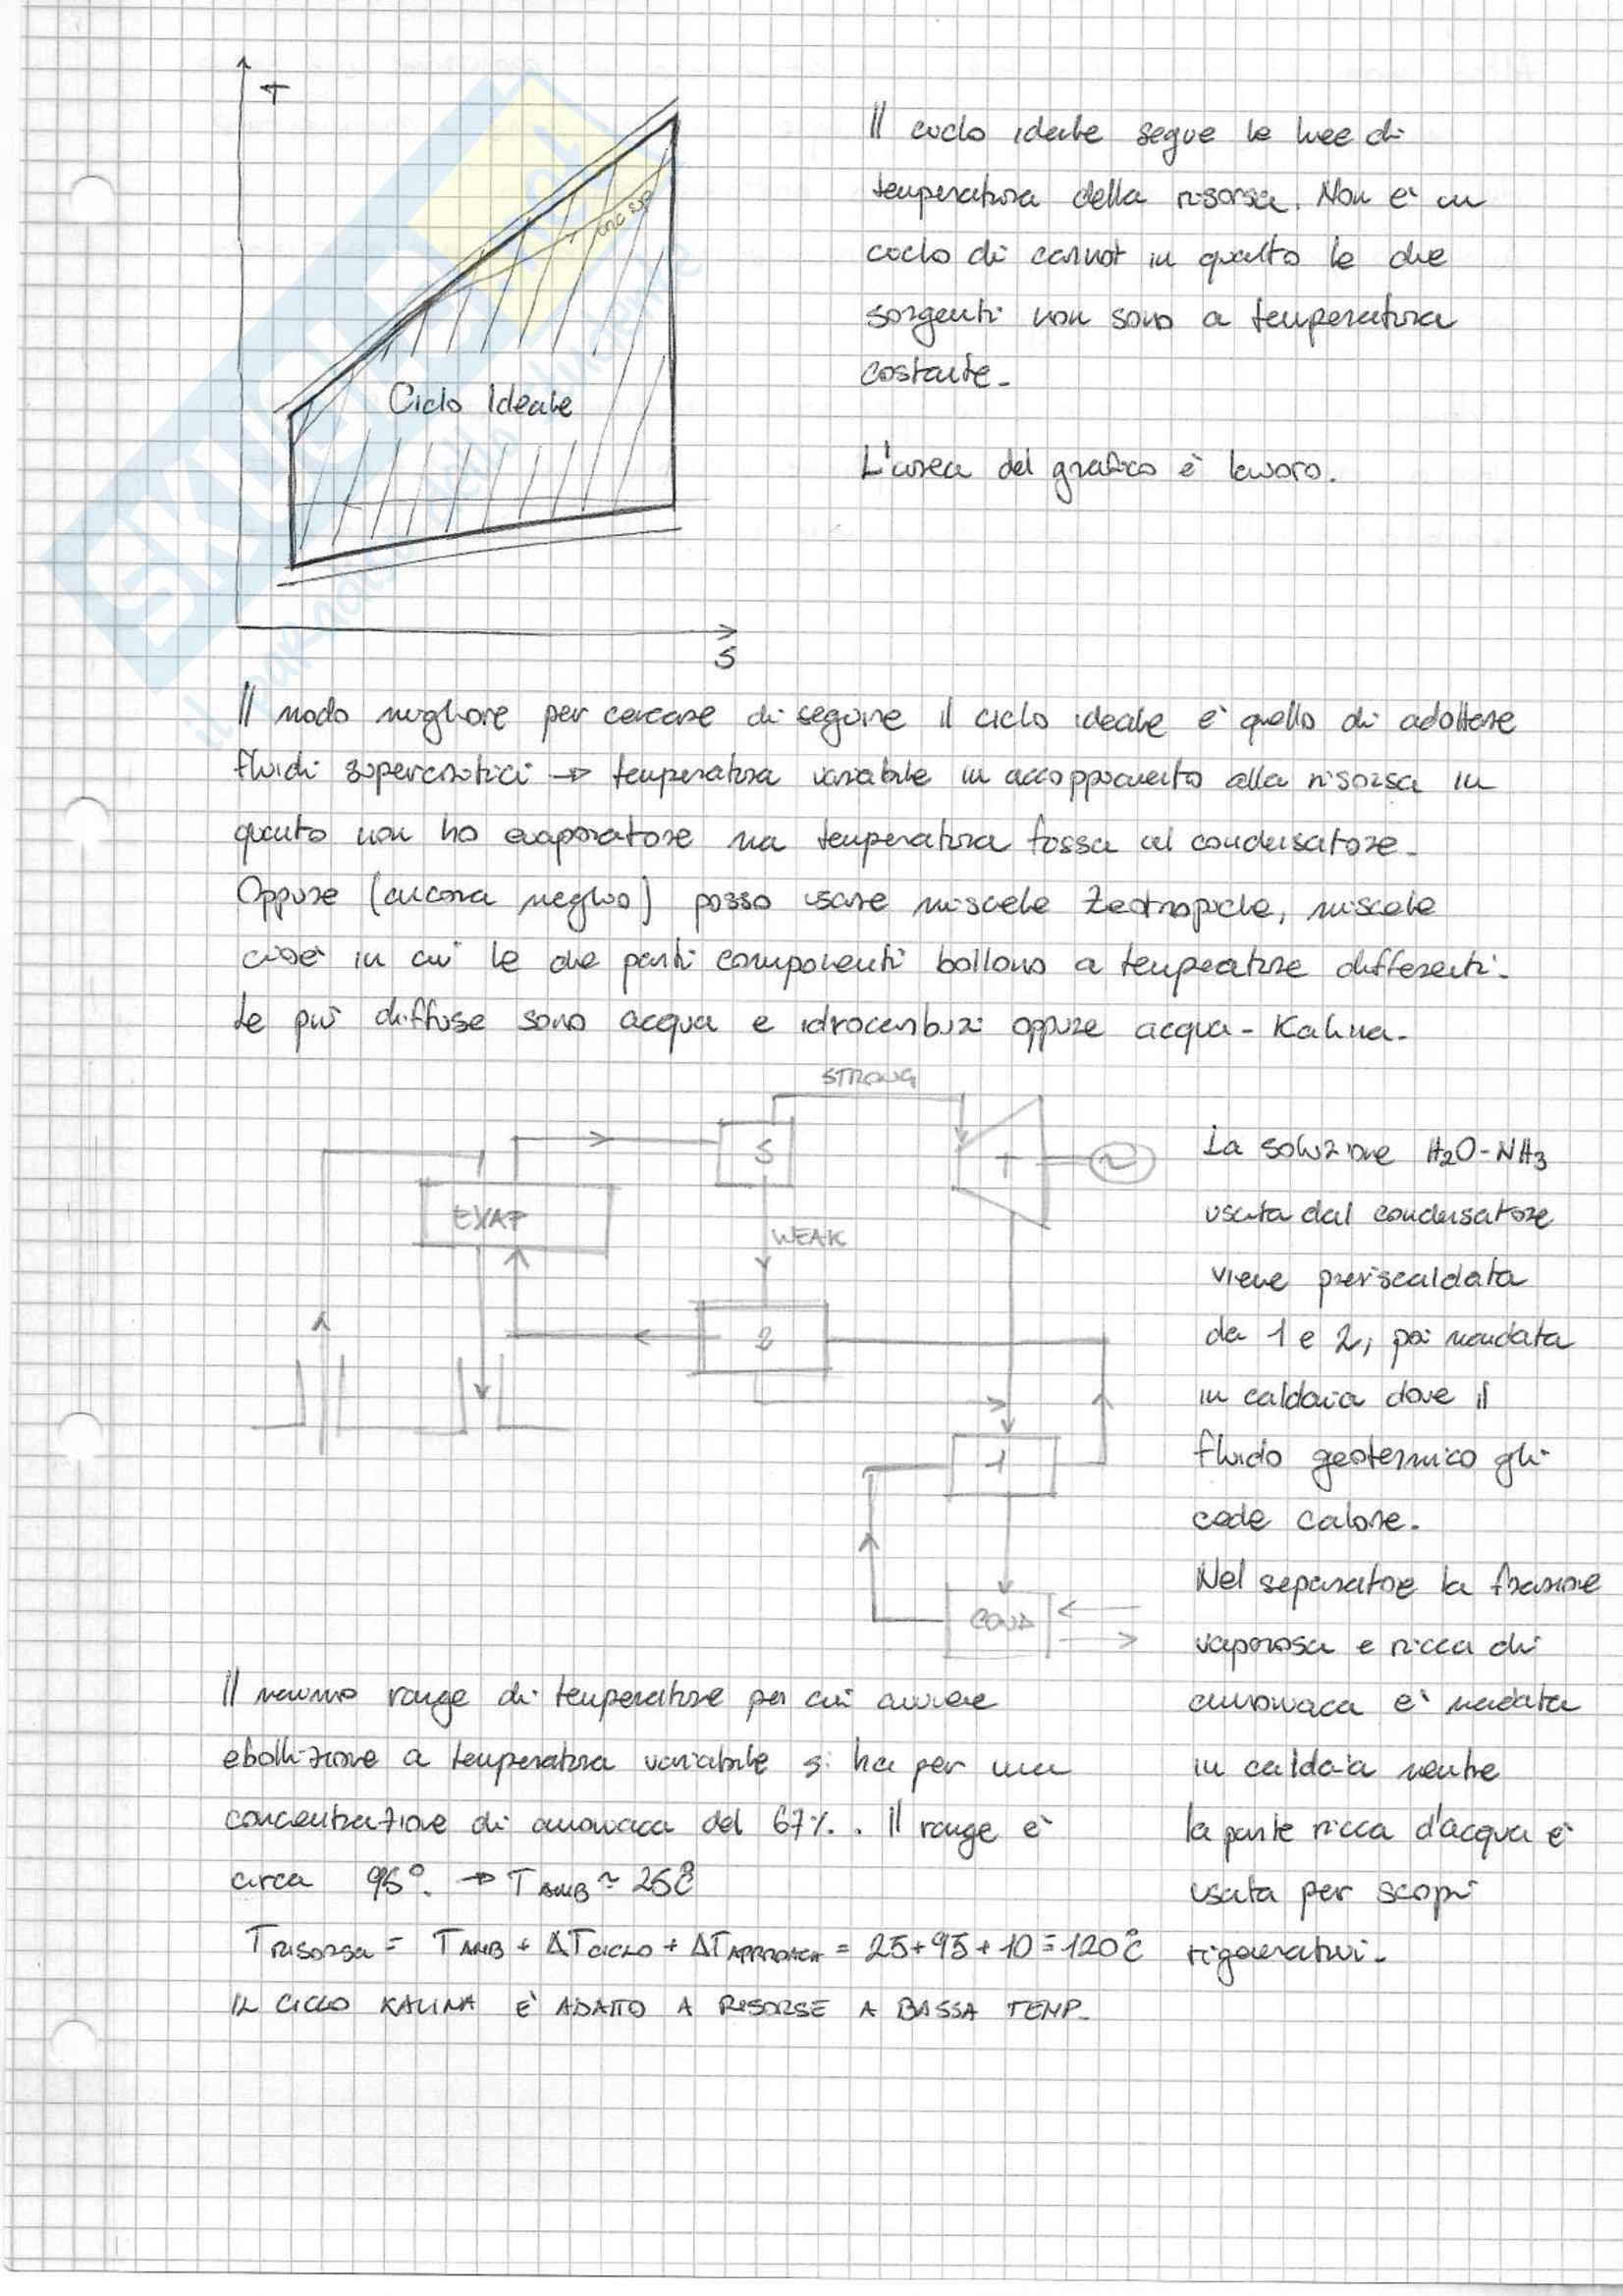 T
ORC sup
Ciclo Ideale
S
Il ciclo ideale segue le linee di
temperatura della risorsa. Non è un
ciclo di carnot in quanto le due
sorgenti non sono a temperatura
costante.
L'area del grafico è lavoro.
Il modo migliore per cercare di seguire il ciclo ideale è quello di adottare
fluidi supercritici → temperatura variabile in accoppiamento alla risorsa in
quanto non ho evaporatore ma temperatura fossa al condensatore.
Oppure (ancora meglio) posso usare miscele zeotropiche, miscele
cioè in cui le due parti componenti bollono a temperature differenti.
Le più diffuse sono acqua e idrocarburi oppure acqua - Kalina.
STRONG
S
T
EVAP
WEAK
2
1
COND
La soluzione H2O-NH3
uscita dal condensatore
viene preriscaldata
da 1 e 2, poi mandata
in caldaia dove il
fluido geotermico gli
cede calore.
Nel separatore la frazione
vaporosa e ricca di
ammoniaca è mandata
in caldaia mentre
la parte ricca d'acqua è
usata per scopi
rigenerativi.
Il massimo range di temperature per cui avviene
ebollizione a temperatura variabile si ha per una
concentrazione di ammoniaca del 67%. Il range è
circa 95°. → TAMB ≃ 25°C
TRISORSA = TAMB + ΔTCICLO + ΔTAPPROACH = 25+95+10 = 120°C
IL CICLO KALINA È ADATTO A RISORSE A BASSA TEMP.
SKUOLA.net
il paradiso dello studente